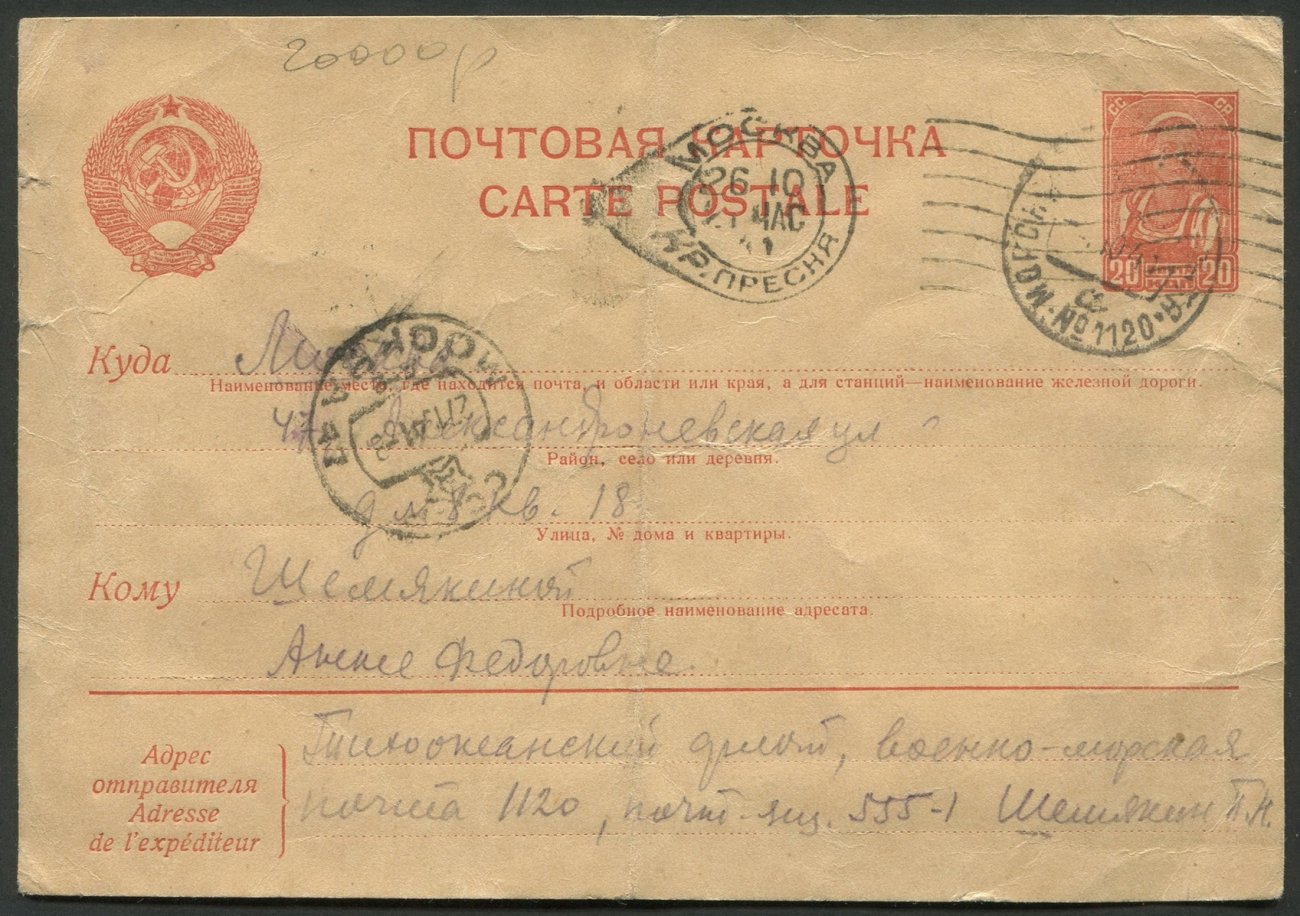 20000р
ПОЧТОВАЯ КАРТОЧКА
CARTE POSTALE
МОСКВА
26 10
ЧАС
41
КР. ПРЕСНЯ
СС СР
20 20
МОРСК
ПОМ. № 1120
Куда
Наименование места, где находится почта, и области или края, а для станций—наименование железной дороги.
МОСКВА
41
СССР
47 Александроневская ул
Район, село или деревня.
д № 8 кв. 18
Улица, № дома и квартиры.
Кому Шемякиной
Подробное наименование адресата.
Анне Федоровне.
Адрес отправителя
Adresse de l'expéditeur
Тихоокеанский флот, военно-морская
почта 1120, почт. ящ. 555-1 Шемякин П.Н.